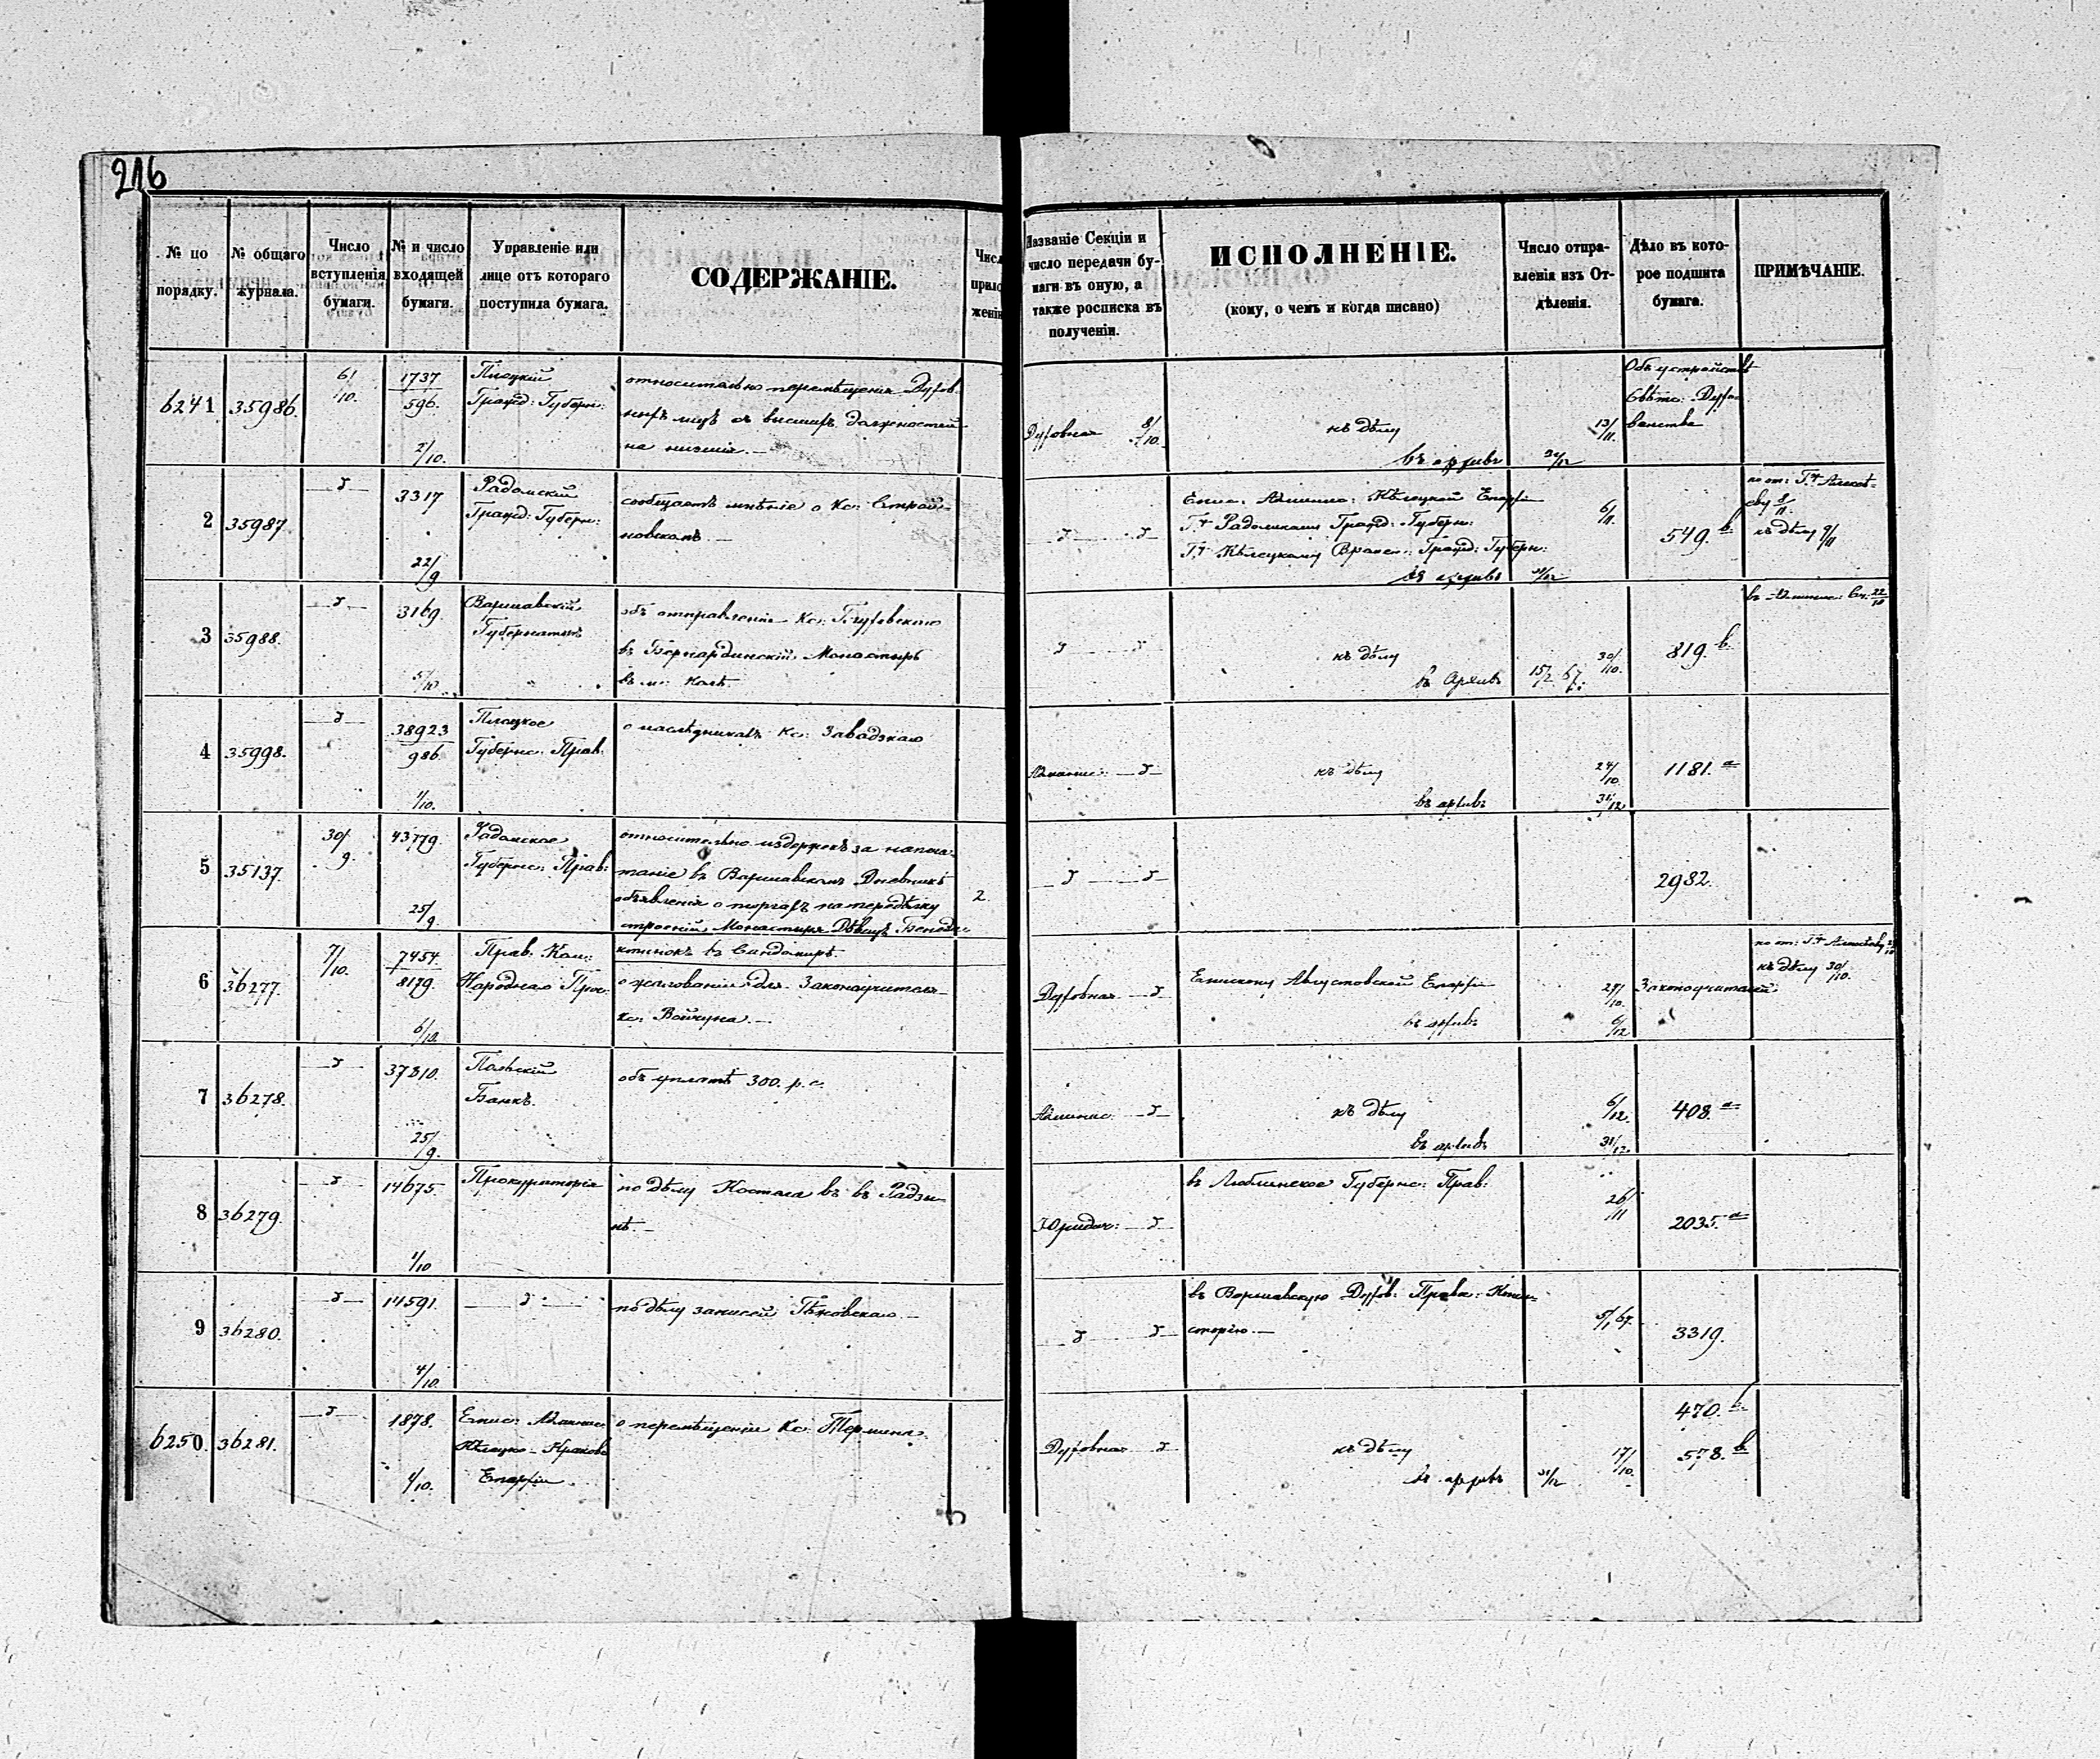 216
№ по порядку.
№ общаго журнала.
Число вступленія бумаги.
№ и число входящей бумаги.
Управленіе или лице отъ котораго поступила бумага.
СОДЕРЖАНІЕ.
Числ прило женій
Названіе Секціи и число передачи бумаги въ оную, а также росписка въ полученіи.
ИСПОЛНЕНІЕ.
(кому, о чемъ и когда писано)
Число отправленія изъ Отдѣленія.
Дѣло въ которое подшита бумага.
ПРИМѢЧАНІЕ.
6241 35986. 6/10. 1737/596. 2/10.
Плоцкій
Гражд: Губерн:
относительно перемѣщенія Духов-
ныхъ лицъ съ высшихъ должностей
на низшія.
Духовная 8/10.
къ дѣлу 13/11.
въ архивъ 31/12
Объ устройствѣ
Свѣтс: Духо-
венства
2 35987. 3317 22/9
Радомскій
Гражд: Губерн:
сообщаетъ мнѣніе о Кс: Строй-
новскомъ.
Епис. Админис: Кѣлецкой Епархіи
Г. Радомскому Гражд: Губерн:
Г. Кѣлецкому Гражд: Губерн:
6/11.
въ архивъ 31/12
549. в.
къ дѣлу 9/11
3 35988. 3169. 5/10.
Варшавскій
Губернаторъ
объ отправленіи Кс:
въ Бернардинскій Монастырь
въ м: Колѣ.
къ дѣлу 30/10.
въ Архивъ 15/2 67.
819. в.
22/10
4 35998. 38923/986. 1/10.
Плоцкое
Губернс: Прав:
о наслѣдникахъ Кс: Завадзкаго
Админис:
къ дѣлу 24/10
въ архивъ 31/12
1181. а
5 35137. 30/9. 43779. 25/9.
Радомское
Губернс: Прав:
относительно издержекъ за напеча-
таніе въ Варшавскомъ Дневникѣ
объявленія о торгахъ на передѣлку
строеній Монастыря Дѣвицъ Бенеди-
ктинокъ въ Сандомирѣ.
2.
2982.
6 36277. 7/10. 7454/8179. 6/10.
Прав: Ком:
Народнаго Прос:
о жалованіи для Законоучителя
кс: Войчуна.
Духовная
Епископу Августовской Епархіи 27/10.
въ архивъ 6/12
Законоучителей.
къ дѣлу 30/10.
7 36278. 37810. 25/9.
Польскій
Банкъ.
объ уплатѣ 300. р. с.
Админис:
къ дѣлу 6/12.
въ архивъ 31/12.
408. а
8 36279. 14675. 1/10
Прокураторія
по дѣлу Костела въ въ Радзи-
нѣ.
Юридич:
въ Люблинское Губернс: Прав: 26/11
2035. а
9 36280. 14591. 4/10.
по дѣлу записей
въ Варшавскую Духов: Правос: Конси-
сторію. 5/1 67.
3319.
6250. 36281. 1878. 4/10.
Епис: Админис
Кѣлецко-Краковс
Епархіи
о перемѣщеніи Кс: Термина.
Духовная
къ дѣлу 17/10.
въ архивъ 31/12
470. в
578. в